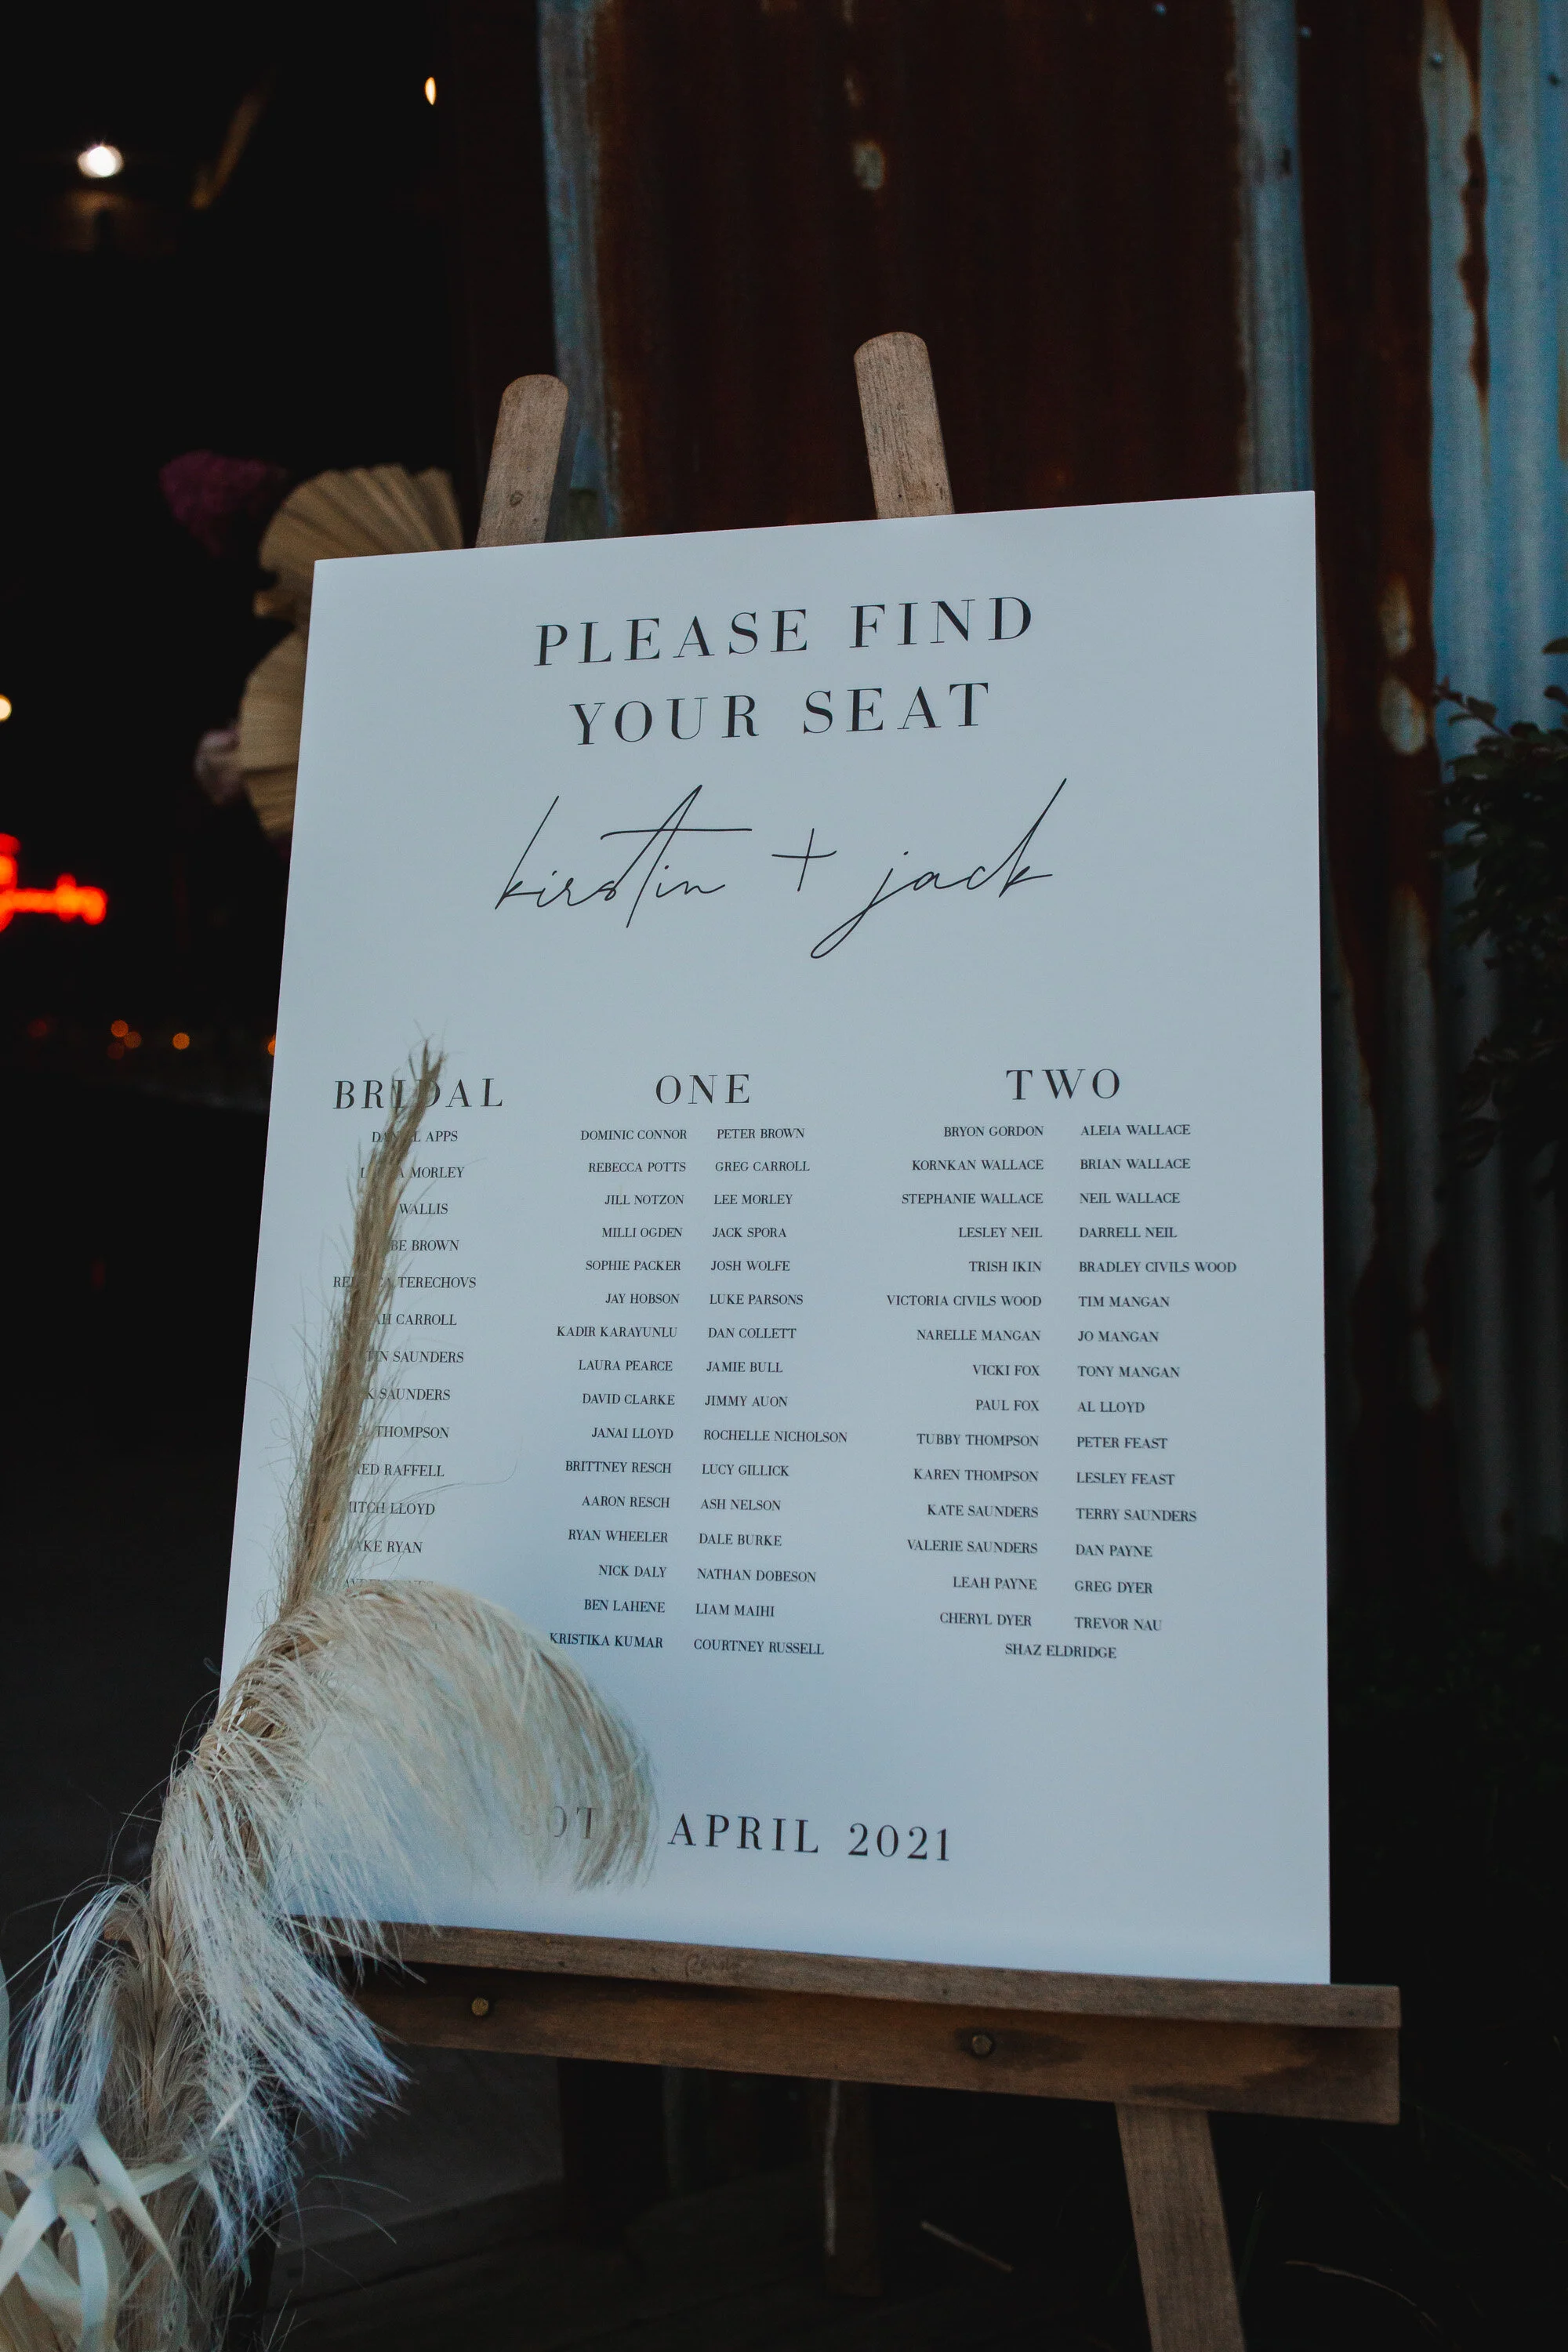 PLEASE FIND
YOUR SEAT
kirstin + jack
BRIDAL
APPS
MORLEY
WALLIS
BROWN
TERECHOVS
CARROLL
SAUNDERS
SAUNDERS
THOMPSON
RAFFELL
MITCH LLOYD
RYAN
ONE
DOMINIC CONNOR PETER BROWN
REBECCA POTTS GREG CARROLL
JILL NOTZON LEE MORLEY
MILLI OGDEN JACK SPORA
SOPHIE PACKER JOSH WOLFE
JAY HOBSON LUKE PARSONS
KADIR KARAYUNLU DAN COLLETT
LAURA PEARCE JAMIE BULL
DAVID CLARKE JIMMY AUON
JANAI LLOYD ROCHELLE NICHOLSON
BRITTNEY RESCH LUCY GILLICK
AARON RESCH ASH NELSON
RYAN WHEELER DALE BURKE
NICK DALY NATHAN DOBESON
BEN LAHENE LIAM MAIHI
KRISTIKA KUMAR COURTNEY RUSSELL
TWO
BRYON GORDON ALEIA WALLACE
KORNKAN WALLACE BRIAN WALLACE
STEPHANIE WALLACE NEIL WALLACE
LESLEY NEIL DARRELL NEIL
TRISH IKIN BRADLEY CIVILS WOOD
VICTORIA CIVILS WOOD TIM MANGAN
NARELLE MANGAN JO MANGAN
VICKI FOX TONY MANGAN
PAUL FOX AL LLOYD
TUBBY THOMPSON PETER FEAST
KAREN THOMPSON LESLEY FEAST
KATE SAUNDERS TERRY SAUNDERS
VALERIE SAUNDERS DAN PAYNE
LEAH PAYNE GREG DYER
CHERYL DYER TREVOR NAU
SHAZ ELDRIDGE
APRIL 2021